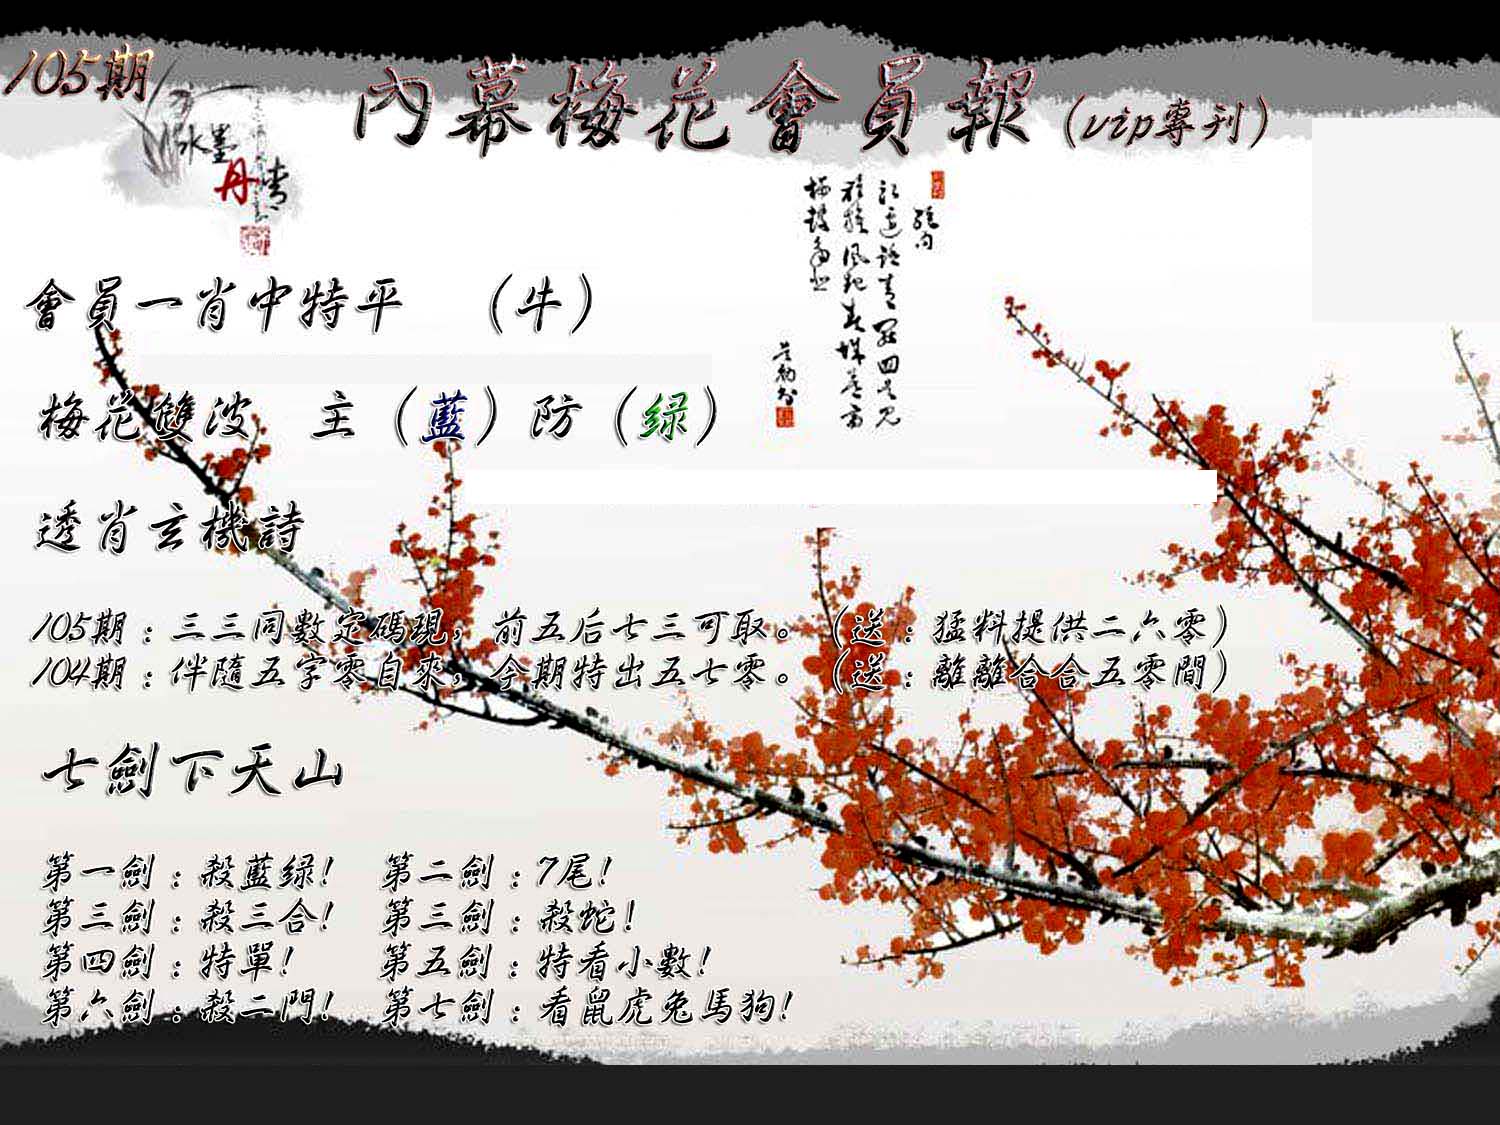 105期
內幕梅花會員報（vip專刊）
水墨
丹
會員一肖中特平 （牛）
梅花雙波 主（藍）防（绿）
透肖玄機詩
105期：三三同數定碼現，前五后七三可取。（送：猛料提供二六零）
104期：伴隨五字零自來，今期特出五七零。（送：離離合合五零間）
七劍下天山
第一劍：殺藍绿！ 第二劍：7尾！
第三劍：殺三合！ 第三劍：殺蛇！
第四劍：特單！ 第五劍：特看小數！
第六劍：殺二門！ 第七劍：看鼠虎兔馬狗！